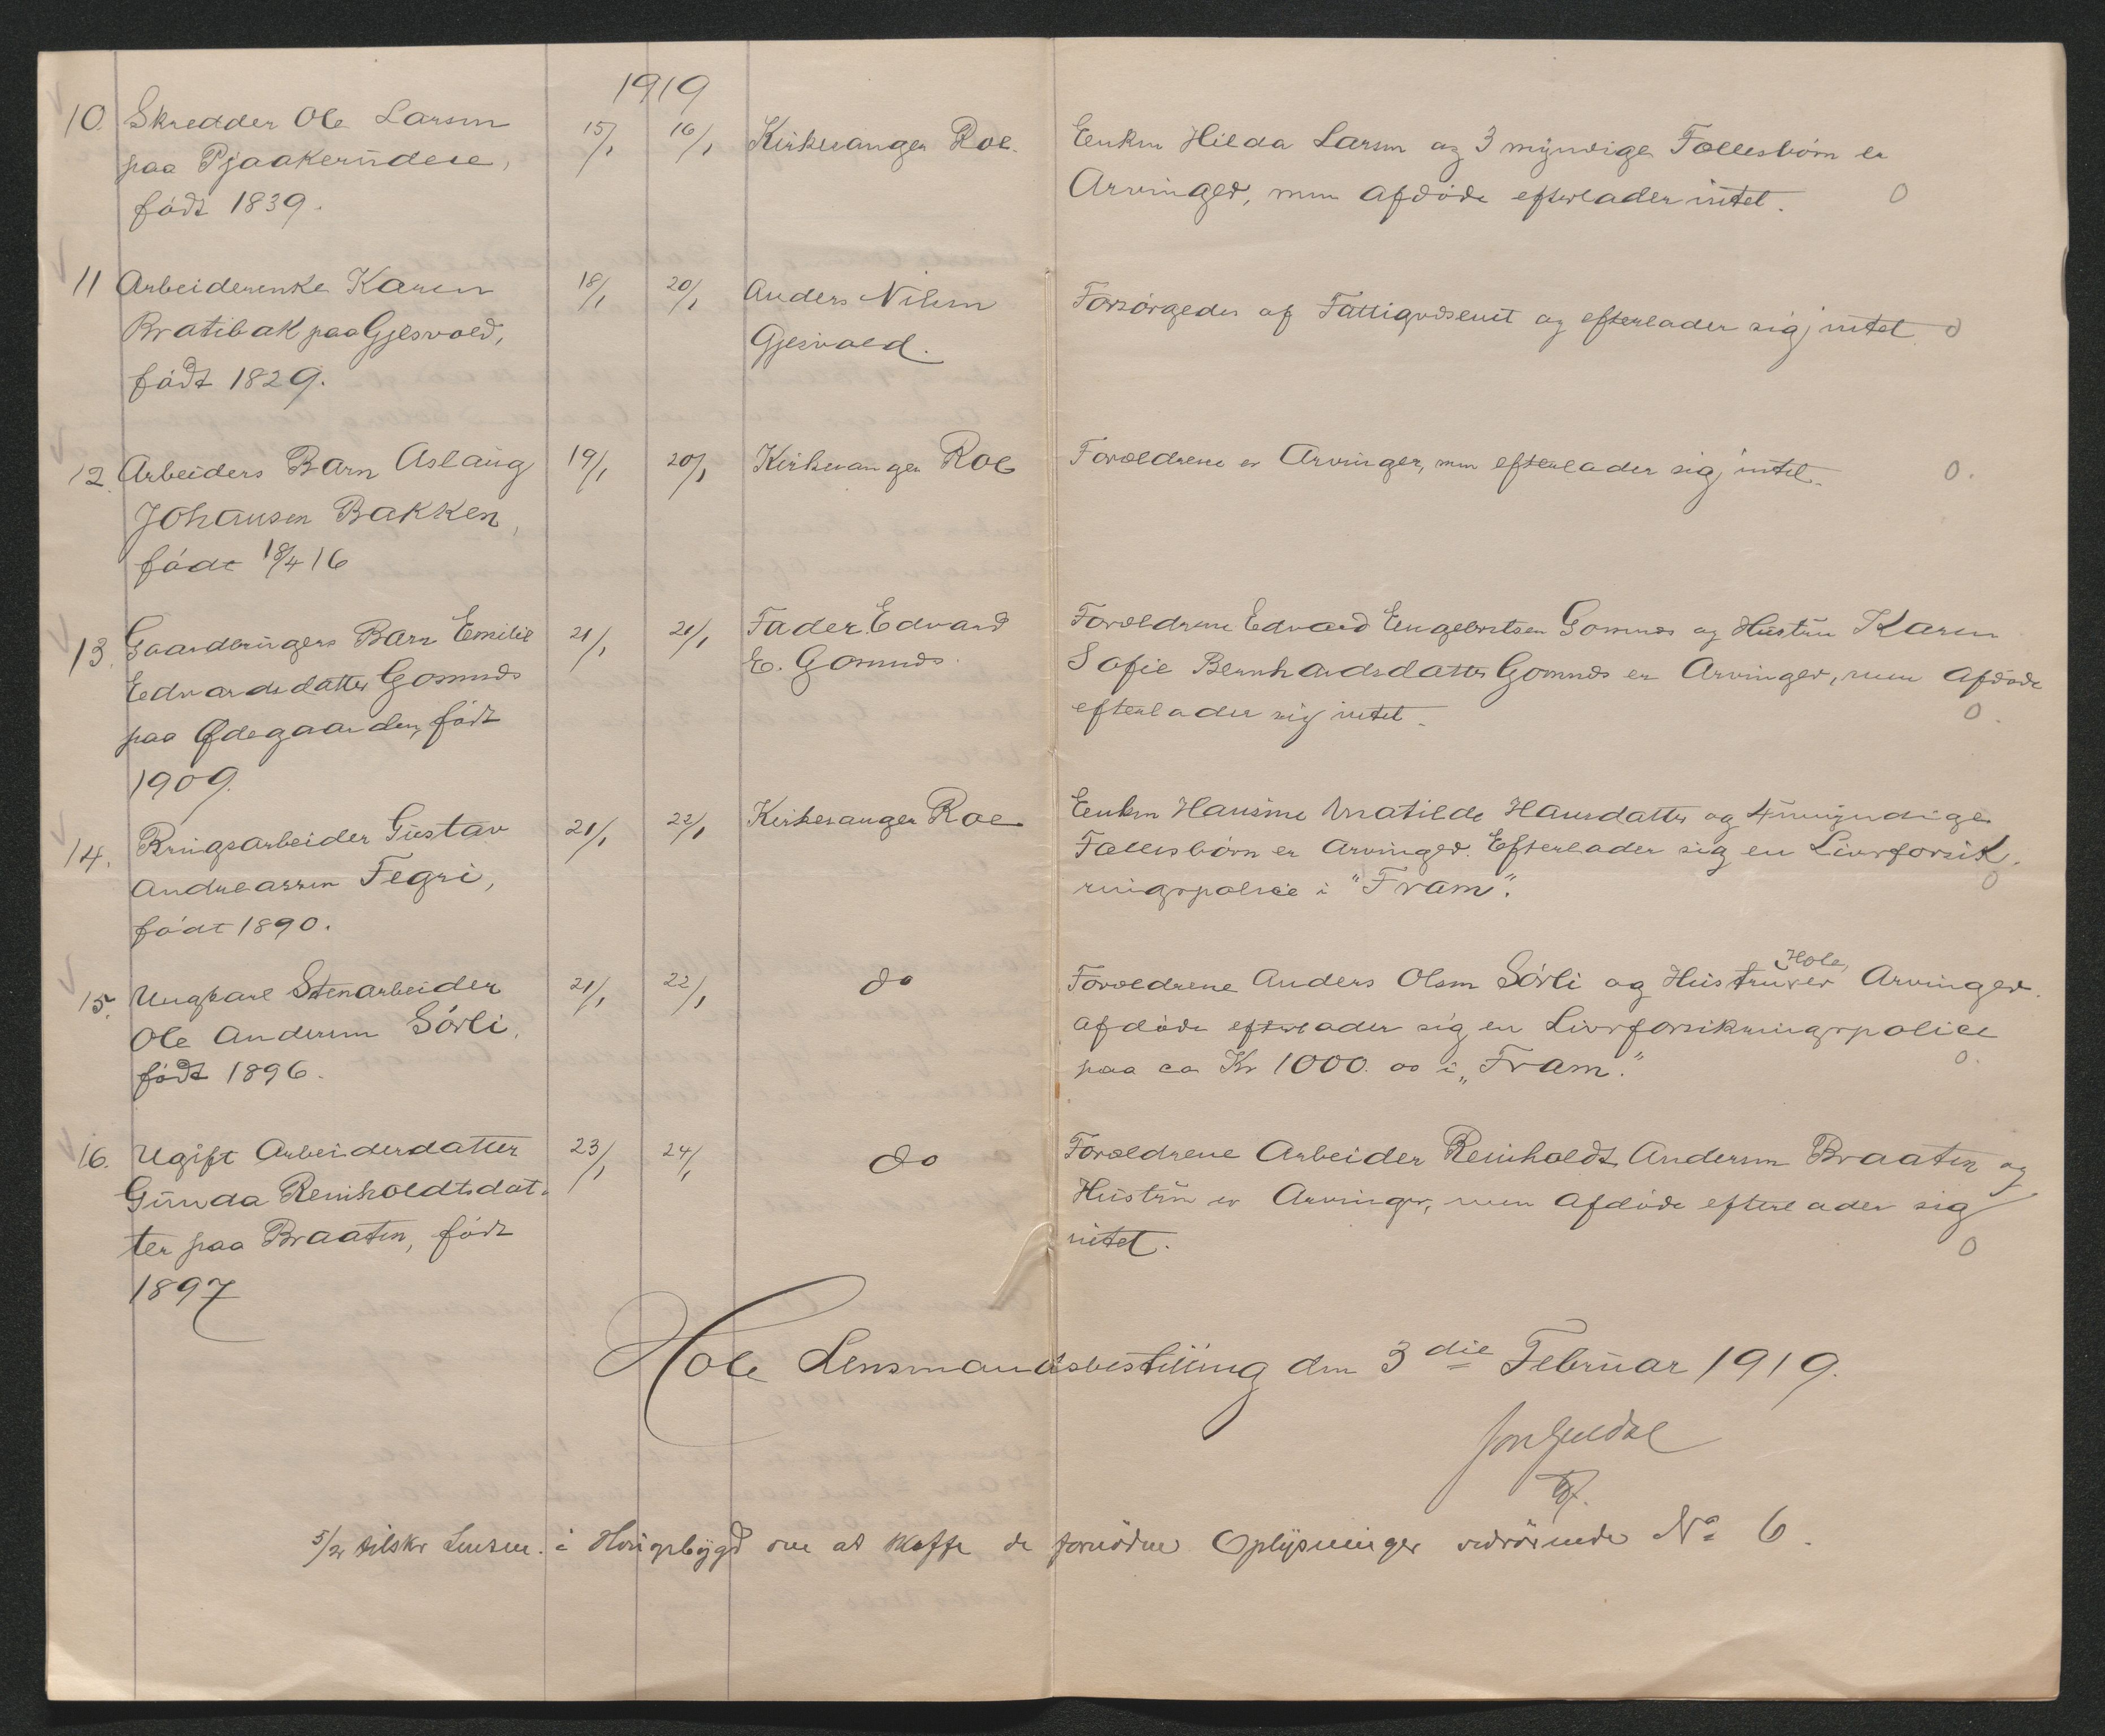 1919
10. Skredder Ole Larsen 15/1 16/1 Kirkesanger Roe. Enken Hilda Larsen og 3 myndige Fællesbörn er
paa Pjaakerudeie, Arvinger, men Afdöde efterlader intet. 0
födt 1839.
11 Arbeiderenke Karen 18/1 20/1 Anders Nilsen Forsörgedes af Fattigvæsenet og efterlader sig intet 0
Bratibak paa Gjesvold, Gjesvold.
födt 1829.
12. Arbeiders Barn Aslaug 19/1 20/1 Kirkesanger Roe Forældrene er Arvinger, men efterlader sig intet. 0.
Johansen Bakken,
födt 18/4 16
13. Gaardbrugers Barn Emilie 21/1 21/1 Fader Edvard Forældrene Edvard Engebretsen Gomnæs og Hustru Karen
Edvardsdatter Gomnæs E. Gomnæs. Sofie Bernhardsdatter Gomnæs er Arvinger, men Afdöde
paa Ødegaarden, födt efterlader sig intet. 0.
1909.
14. Brugsarbeider Gustav 21/1 22/1 Kirkesanger Roe Enken Hansine Matilde Hansdatter og 4 umyndige
Andreassen Fegri, Fællesbörn er Arvinger. Efterlader sig en Livsforsik-
födt 1890. ringspolice i "Fram". 0
15. Ungkarl Stenarbeider 21/1 22/1 do Forældrene Anders Olsen Sörli og Hustru, Hole, er Arvinger.
Ole Andersen Sörli, Afdöde efterlader sig en Livsforsikringspolice
födt 1896. paa ca Kr 1000.00 i „Fram." 0.
16. Ugift Arbeiderdatter 23/1 24/1 do Forældrene Arbeider Reinholdt Andersen Braaten og
Gunda Reinholdtsdat- Hustru er Arvinger, men Afdöde efterlader sig
ter paa Braaten, födt intet. 0
1897
Hole Lensmandsbestilling den 3die Februar 1919.
5/2 tilskr Lensm. i Norderhov om at skaffe de fornödne Oplysninger vedrörende No 6.